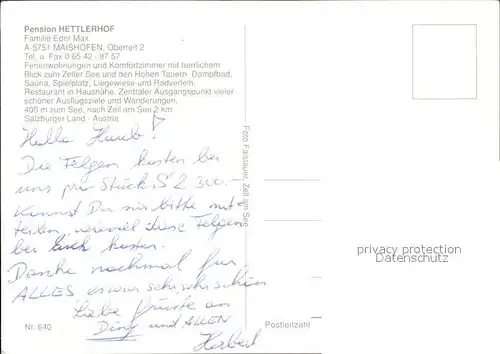 Pension HETTLERHOF
Familie Eder Max
A-5751 MAISHOFEN, Oberreit 2
Tel. u. Fax 0 65 42 / 87 57
Ferienwohnungen und Komfortzimmer mit herrlichem
Blick zum Zeller See und den Hohen Tauern. Dampfbad,
Sauna, Spielplatz, Liegewiese und Radverleih.
Restaurant in Hausnähe. Zentraler Ausgangspunkt vieler
schöner Ausflugsziele und Wanderungen.
400 m zum See, nach Zell am See 2 km
Salzburger Land - Austria
Hallo
Die Felgen kosten bei
uns pro Stück S 2 300.-
Kannst Du mir bitte mit-
teilen, wieviel diese Felgen
bei Euch kosten.
Danke nochmal für
ALLES es war sehr, sehr schön
Liebe Grüsse an
Dich und ALLEN
Herbert
Nr. 640
Foto Faistauer, Zell am See
Postleitzahl
privacy protection
Datenschutz